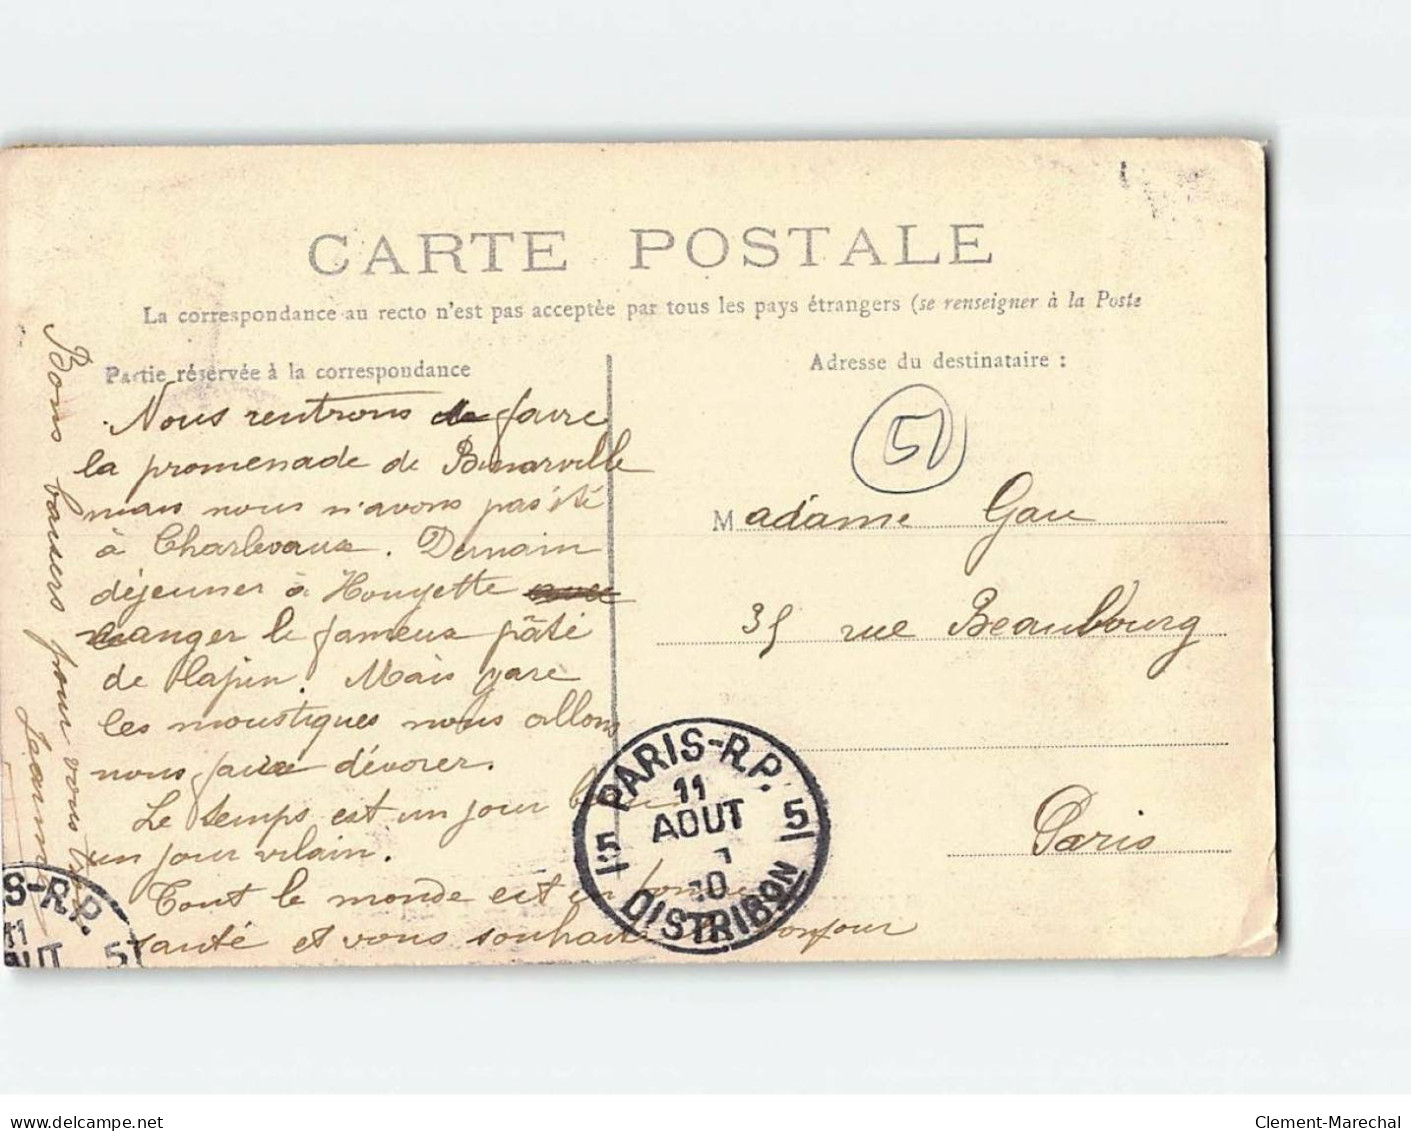 CARTE POSTALE
La correspondance au recto n'est pas acceptée par tous les pays étrangers (se renseigner à la Poste
Partie réservée à la correspondance
Adresse du destinataire :
Nous rentrons de faire
la promenade de Binarville
mais nous n'avons pas été
à Charlevaux. Demain
déjeuner à Houyette
manger le fameux pâté
de lapin. Mais gare
les moustiques nous allons
nous faire dévorer.
Le temps est un jour
un jour vilain.
Tout le monde est en bonne
santé et vous souhaite bonjour
Bons baisers pour vous
Jeanne
51
Madame Gau
35 rue Beaubourg
Paris
PARIS-R.P.
11
AOUT
10
5 5
DISTRIBON
S-R.P.
11
OUT 5
www.delcampe.net
Clement-Marechal